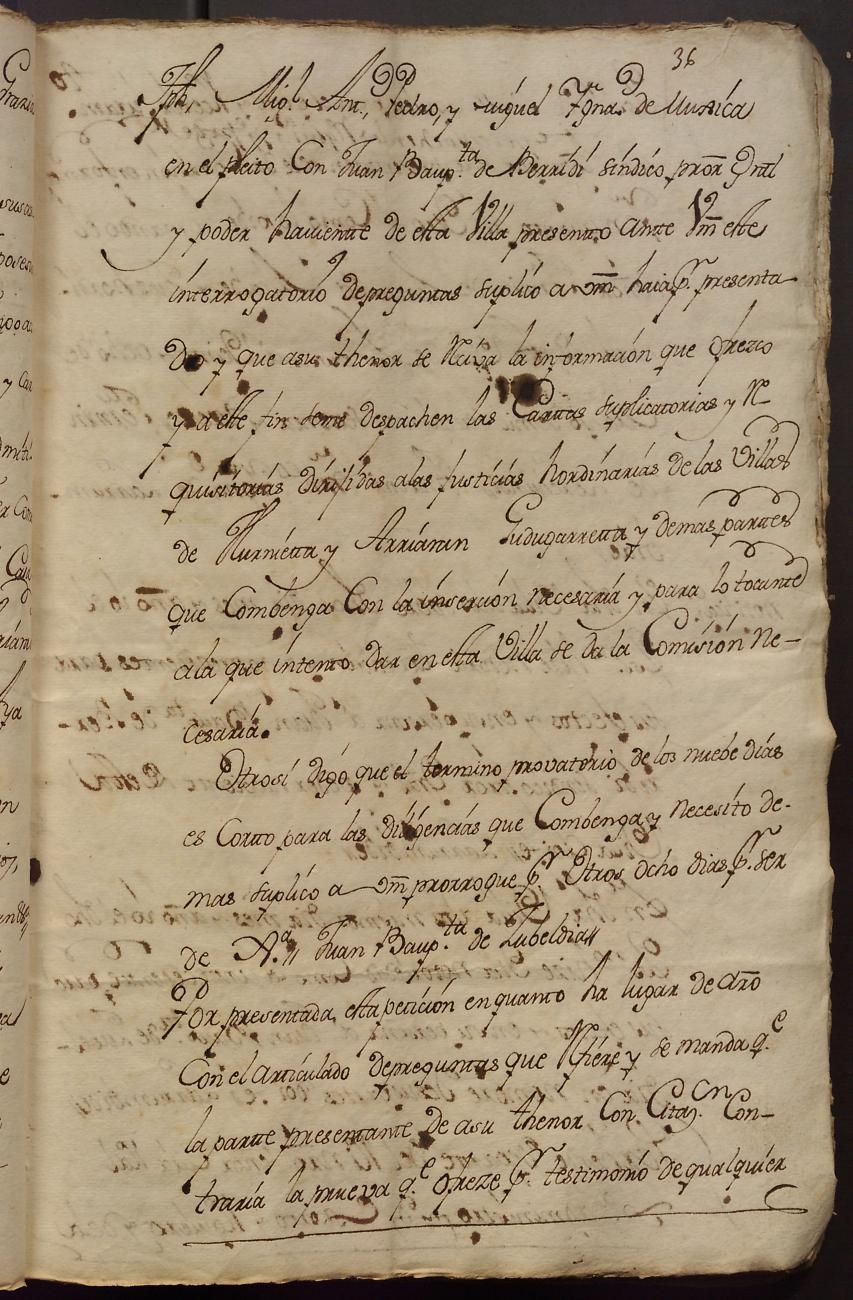 36
Jph, Migl Ant., Pedro, y Miguel Ygna. de Muxica
en el pleito Con Juan Baup.ta de Berridi sindico pror Gnrl
y poder haviente de esta Villa presento ante Vm este
interrogatorio de preguntas suplico a vm haia pr. presenta
do y que asu thenor se Reciva la información que ofrezco
y a este fin seme despachen las Cartas suplicatorias y Re
quisitorias dirijidas alas Justicias hordinarias de las Villas
de Hurnietta y Arriaran Gudugarretta y demas partes
que Combenga Con la inserción necesaria y para lo tocante
ala que intento dar en esta Villa se da la Comisión Ne-
cesaria.
Otrosi digo que el termino provatorio de los nuebe dias
es Corto para las diligencias que Combenga y necesito de-
mas suplico a vm prorrogue pr Otros ocho dias pr. ser
de Ja.// Juan Baup.ta de Zubeldia//
Por presentada esta petición en quanto ha lugar de dro
Con el articulado de preguntas que Refiere y se manda q.e
la parte presentante de asu thenor Con Citaz.cn Con-
traria la prueva q.e ofreze pr testimonio de qualquier